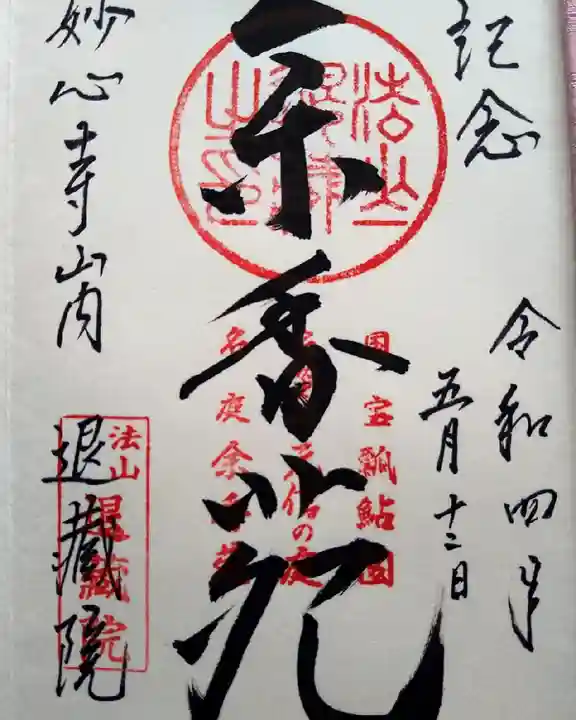 記念
令和四年
五月十二日
余香苑
国宝瓢鮎図
元信の庭
名庭余香苑
妙心寺山内
退蔵院
法山
退藏院